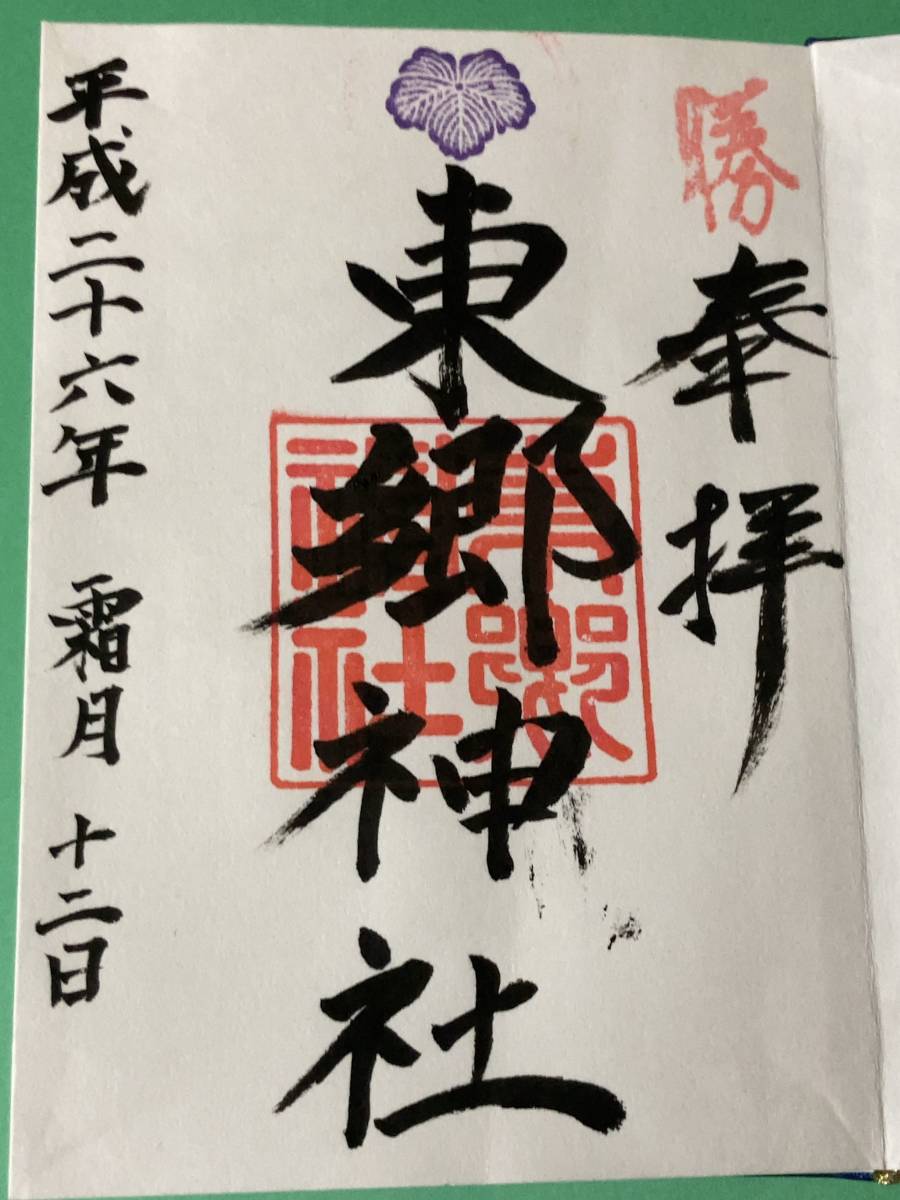 勝
奉拝
東郷神社
東郷神社
平成二十六年 霜月 十二日